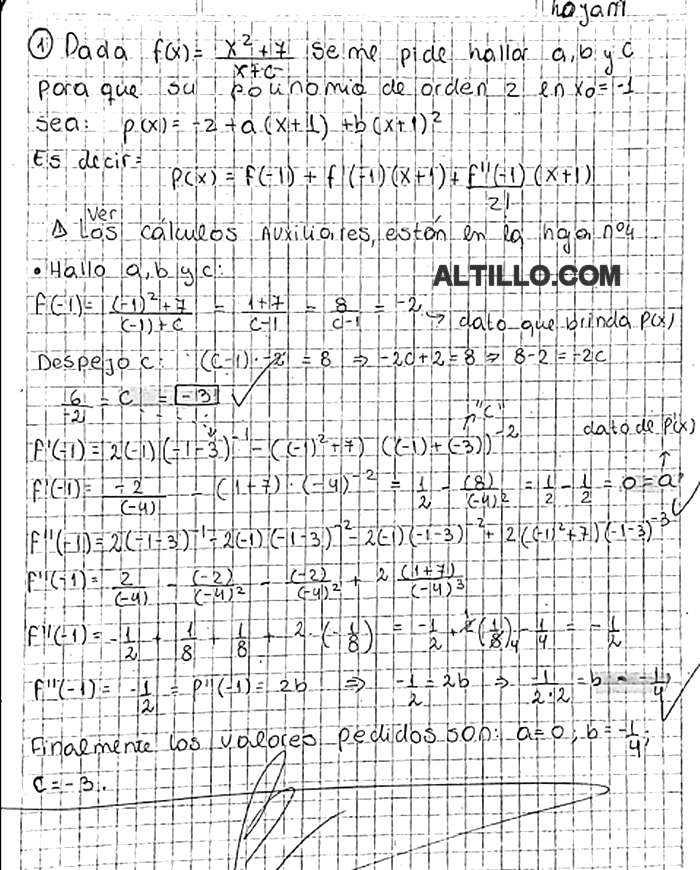 hojam
① Dada f(x) = (x²+7)/(x+c) Se me pide hallar a, b y c
para que su polinomio de orden 2 en x₀=-1
sea: p(x) = -2 + a(x+1) + b(x+1)²
Es decir:
p(x) = f(-1) + f'(-1)(x+1) + f''(-1)/2! (x+1)
ver
Δ Los cálculos Auxiliares, están en la hoja nº4
• Hallo a, b y c:
ALTILLO.COM
f(-1) = ((-1)²+7)/((-1)+c) = (1+7)/(c-1) = 8/(c-1) = -2 → dato que brinda p(x)
Despejo c: (c-1)·-2 = 8 ⇒ -2c+2=8 ⇒ 8-2=-2c
6/-2 = c = -3 ✓
"c"
dato de p'(x)
f'(-1) = 2(-1)(-1-3)⁻¹ - ((-1)²+7) ((-1)+(-3))⁻²
f'(-1) = -2/(-4) - (1+7)·(-4)⁻² = 1/2 - (8)/(-4)² = 1/2 - 1/2 = 0 = a ✓
f''(-1) = 2(-1-3)⁻¹ - 2(-1)(-1-3)⁻² - 2(-1)(-1-3)⁻² + 2((-1)²+7)(-1-3)⁻³
f''(-1) = 2/(-4) - (-2)/(-4)² - (-2)/(-4)² + 2 (1+7)/(-4)³
f''(-1) = -1/2 + 1/8 + 1/8 + 2·(-1/8) = -1/2 + 2(1/8) - 1/4 = -1/2
f''(-1) = -1/2 = P''(-1) = 2b ⇒ -1/2 = 2b ⇒ -1/2·2 = b = -1/4 ✓
Finalmente los valores pedidos son: a=0; b=-1/4;
c=-3.